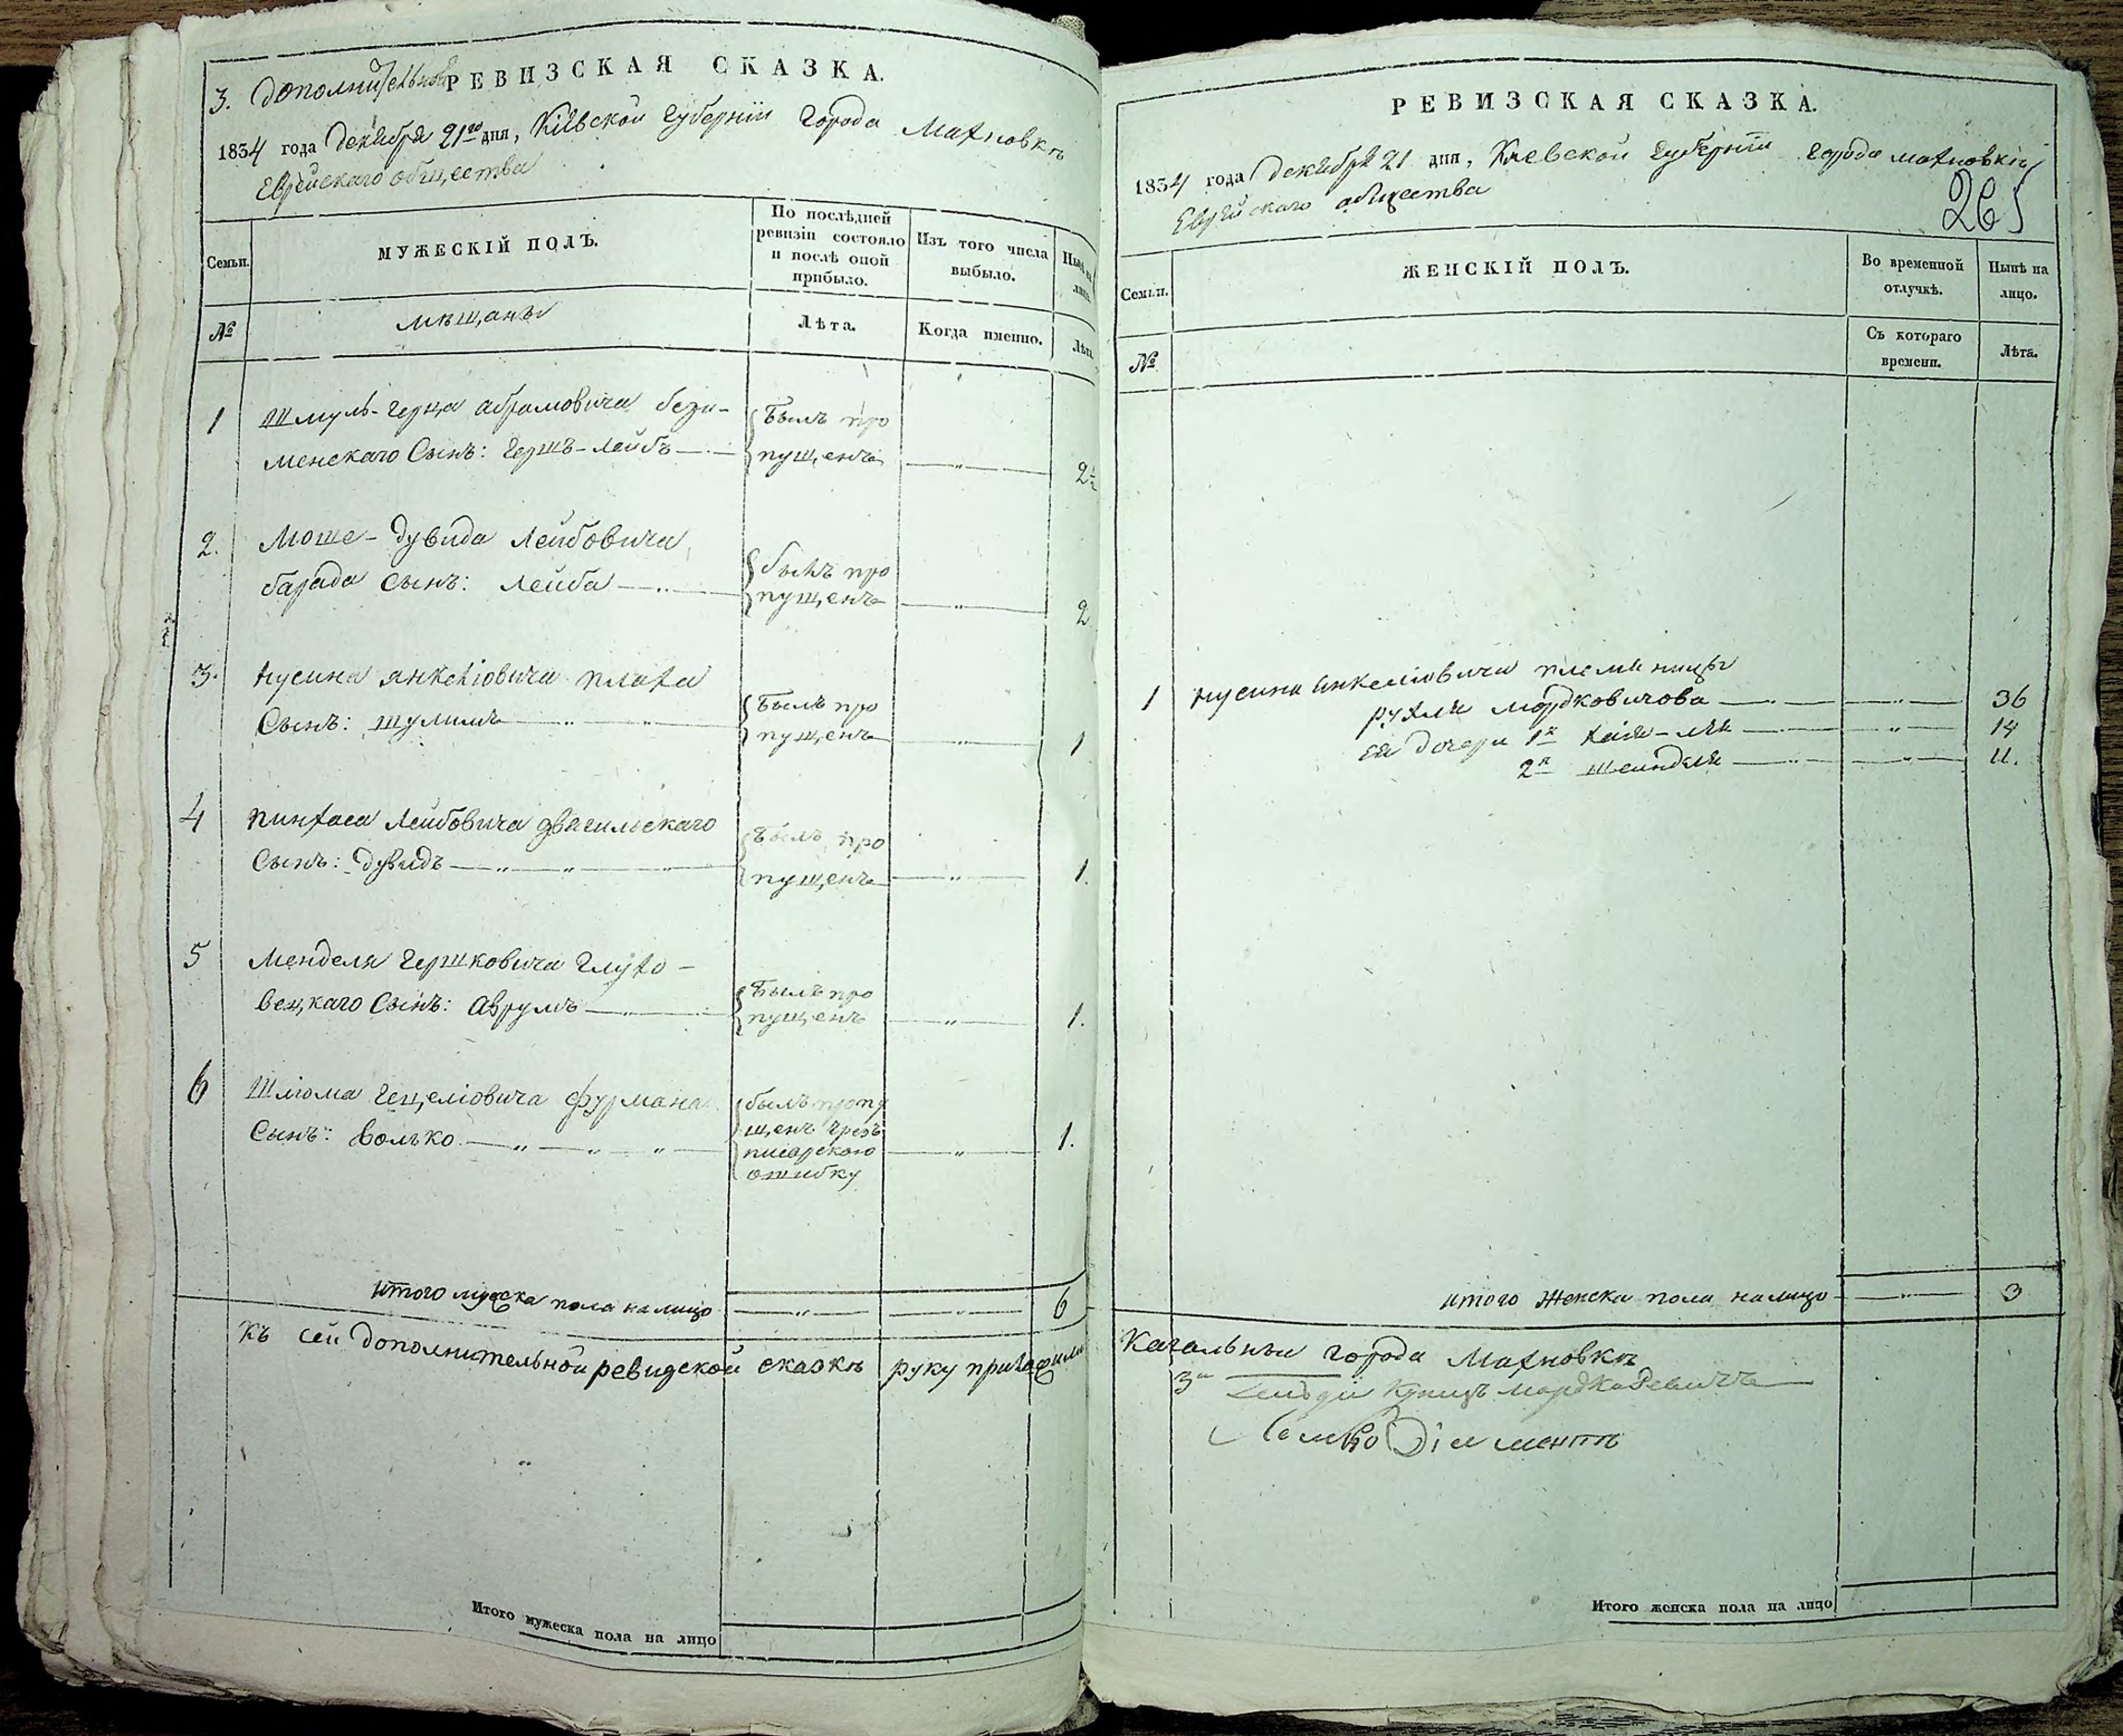 3. дополнительная РЕВИЗСКАЯ СКАЗКА.
1834 года декабря 21го дня, Кіевской губерніи города Махновки
Еврейскаго общества
Семьи.
МУЖЕСКІЙ ПОЛЪ.
По послѣдней ревизіи состояло и послѣ оной прибыло.
Изъ того числа выбыло.
Нынѣ на лицо.
№
мѣщаны
Лѣта.
Когда именно.
Лѣта.
1 Шмуль-герца абрамовича бези-
менскаго Сынъ: Гершъ-лейбъ
былъ про
пущенъ
2½
2. Моше-дувида лейбовича
барада сынъ: лейба
былъ про
пущенъ
2
3. нусина янкеліовича плаха
Сынъ: шулимъ
былъ про
пущенъ
1
4 пинхаса лейбовича звягильскаго
Сынъ: дувидъ
былъ про
пущенъ
1.
5 менделя гершковича глухо-
вецкаго Сынъ: аврумъ
былъ про
пущенъ
1.
6 шліома гецеліовича фурмана
Сынъ: волько
былъ пропу
щенъ чрезъ
писарскою
ошибку
1.
итого мужска пола на лицо 6
Къ сей дополнительной ревизской сказкѣ руку приложили
Итого мужеска пола на лицо
РЕВИЗСКАЯ СКАЗКА.
1834 года декабря 21 дня, Кіевской губерніи города махновки
Еврейскаго общества
265
Семьи.
ЖЕНСКІЙ ПОЛЪ.
Во временной отлучкѣ.
Нынѣ на лицо.
№
Съ котораго времени.
Лѣта.
1 нусина янкеліовича племяницы
рухля мордковичова 36
ея дочери 1я хая-лея 14
2я шейндля 11.
итого женска пола налицо 3
Кагальныи города Махновки
3й гильдіи купецъ мордко
Итого женска пола на лицо